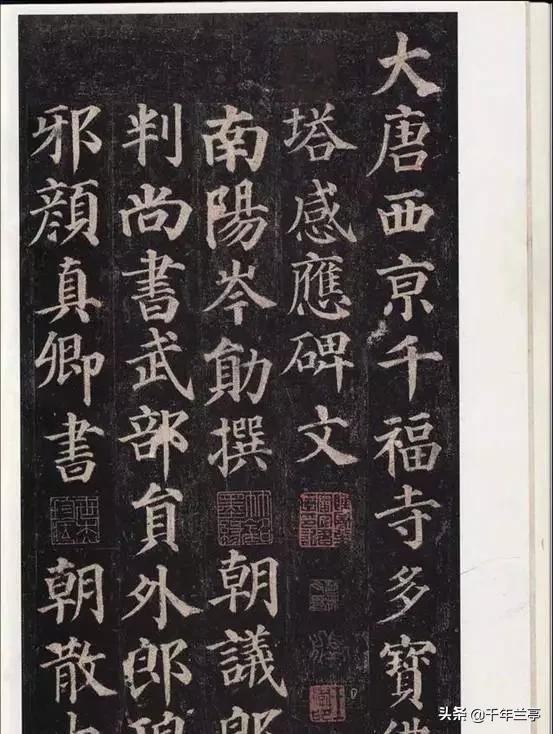 大唐西京千福寺多寶佛
塔感應碑文
南陽岑勛撰 朝議郎
判尚書武部員外郎琅
邪顏真卿書 朝散大
头条 @千年兰亭